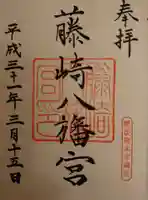 奉拝
藤崎八旛宮
平成三十一年三月十五日